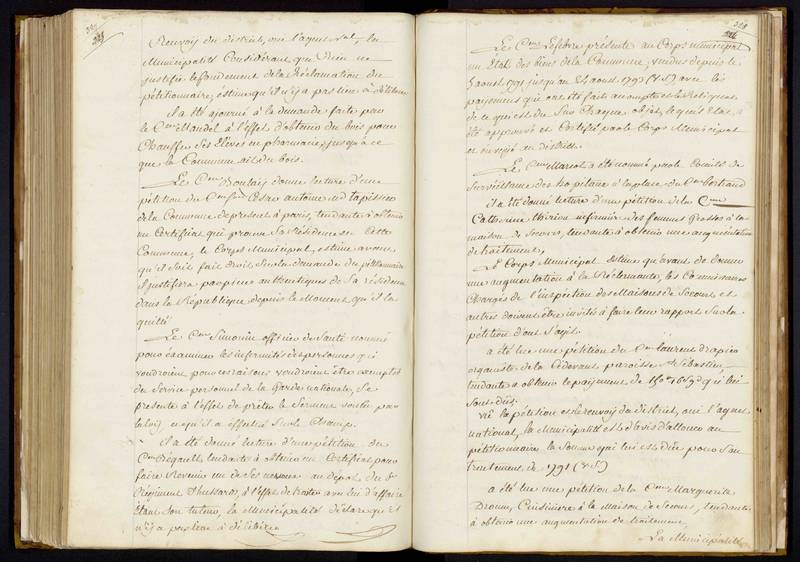 Renvoy du district, oui l'agent Nal, la
Municipalité Considérant que Rien ne
justifie le fondement de la Réclamation du
pétitionnaire, estime qu'il n'y a pas lieu à délibérer
il a été ajourné à la demande faite par
le Cen Mandel à l'effet d'obtenir du bois pour
Chauffer Ses Elèves en pharmacie, jusqu'à ce
que la Commune ait du bois.
Le Cen Boulay donne lecture d'une
pétition du Cen César antoine tapissier
de la Commune de présent à paris, tendante à obtenir
un Certificat qui prouve Sa Résidence en Cette
Commune, le Corps Municipal, estime avant
qu'il soit fait droit Sur la demande du pétitionnaire
il justifiera par pièces authentiques de Sa résidence
dans la République depuis le Moment qu'il l'a
quitté
Le Cen Simonin officier de Santé nommé
pour éxaminer les infirmités des personnes qui
voudroient, pour ces raisons voudroient être exemptes
du Service personnel de la Garde nationale, Se
présente à l'effet de prêter le Serment voulu par
la loi, ce qu'il a effectué Sur le Champ.
il a été donné lecture d'une pétition du
Cen Régault, tendante à obtenir un Certificat pour
faire Revenir un de Ses neveux au dépôt du 8e
Régiment d'hussards, à l'effet de traiter avec lui d'affaire
étant Son tuteur, la Municipalité déclare qu'il
n'y a pas lieu à délibérer
328
Le Cen Lefebvre présente au Corps municipal
un État des biens de la Commune, vendus depuis le
5 aoust 1791 jusqu'au 24 aoust 1793 (V.S) avec les
payemens qui ont été faits à compte et le Reliquat
de ce qui est dû Sur Chaque objet, lequel État, a
été approuvé et Certifié par le Corps Municipal
et envoyé au district.
Le Cen Marsot a été nommé par le Comité de
Surveillance des hopitaux à la place du Cen bertrand
il a été donné lecture d'une pétition de la Cenne
Catherine thirion infirmière des femmes grosses à la
maison de Secours, tendante à obtenir une augmentation
de traitement,
Le Corps Municipal Estime qu'avant de donner
une augmentation à la Réclamante, les Commissaires
Chargés de l'inspection des Maisons de Secours et
autres doivent être invités à faire leur rapport Sur la
pétition dont s'agit.
a été lue une pétition du Cen laurent drapier
organiste de la Cidevant paroisse St Sébastien
tendante à obtenir le payement de qui lui
Sont dûs.
vu la pétition et le renvoy du district, oui l'agent
national, la Municipalité est d'avis d'allouer au
pétitionnaire la Somme qui lui est dûe pour Son
traitement de 1791 (V.S)
a été lue une pétition de la Cenne Marguerite
Drouin, Cuisinière à la Maison de Secours, tendante
à obtenir une augmentation de traitement,
La Municipalité